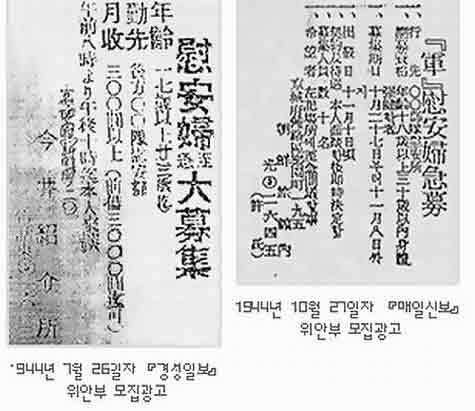 慰安婦至急大募集
年齡 一七歲以上廿三歲迄
勤先 後方〇〇隊慰安部
月收 三〇〇圓以上(前借三〇〇〇圓迄可)
午前八時より午後十時迄本人來談
今井紹介所
1944년 7월 26일자 『경성일보』
위안부 모집광고
『軍』慰安婦急募
一、行先 〇〇部隊慰安所
一、應募資格 年齡十八歲以上三十歲以內身體
一、募集期日 十月二十七日 十一月八日
一、出發日 十一月十日頃
一、契約及待遇 本人面談後即時決定
一、募集人員 名
一、希望者 左記場所
朝鮮旅館內
光③二六四五
(許氏)
1944년 10월 27일자 『매일신보』
위안부 모집광고